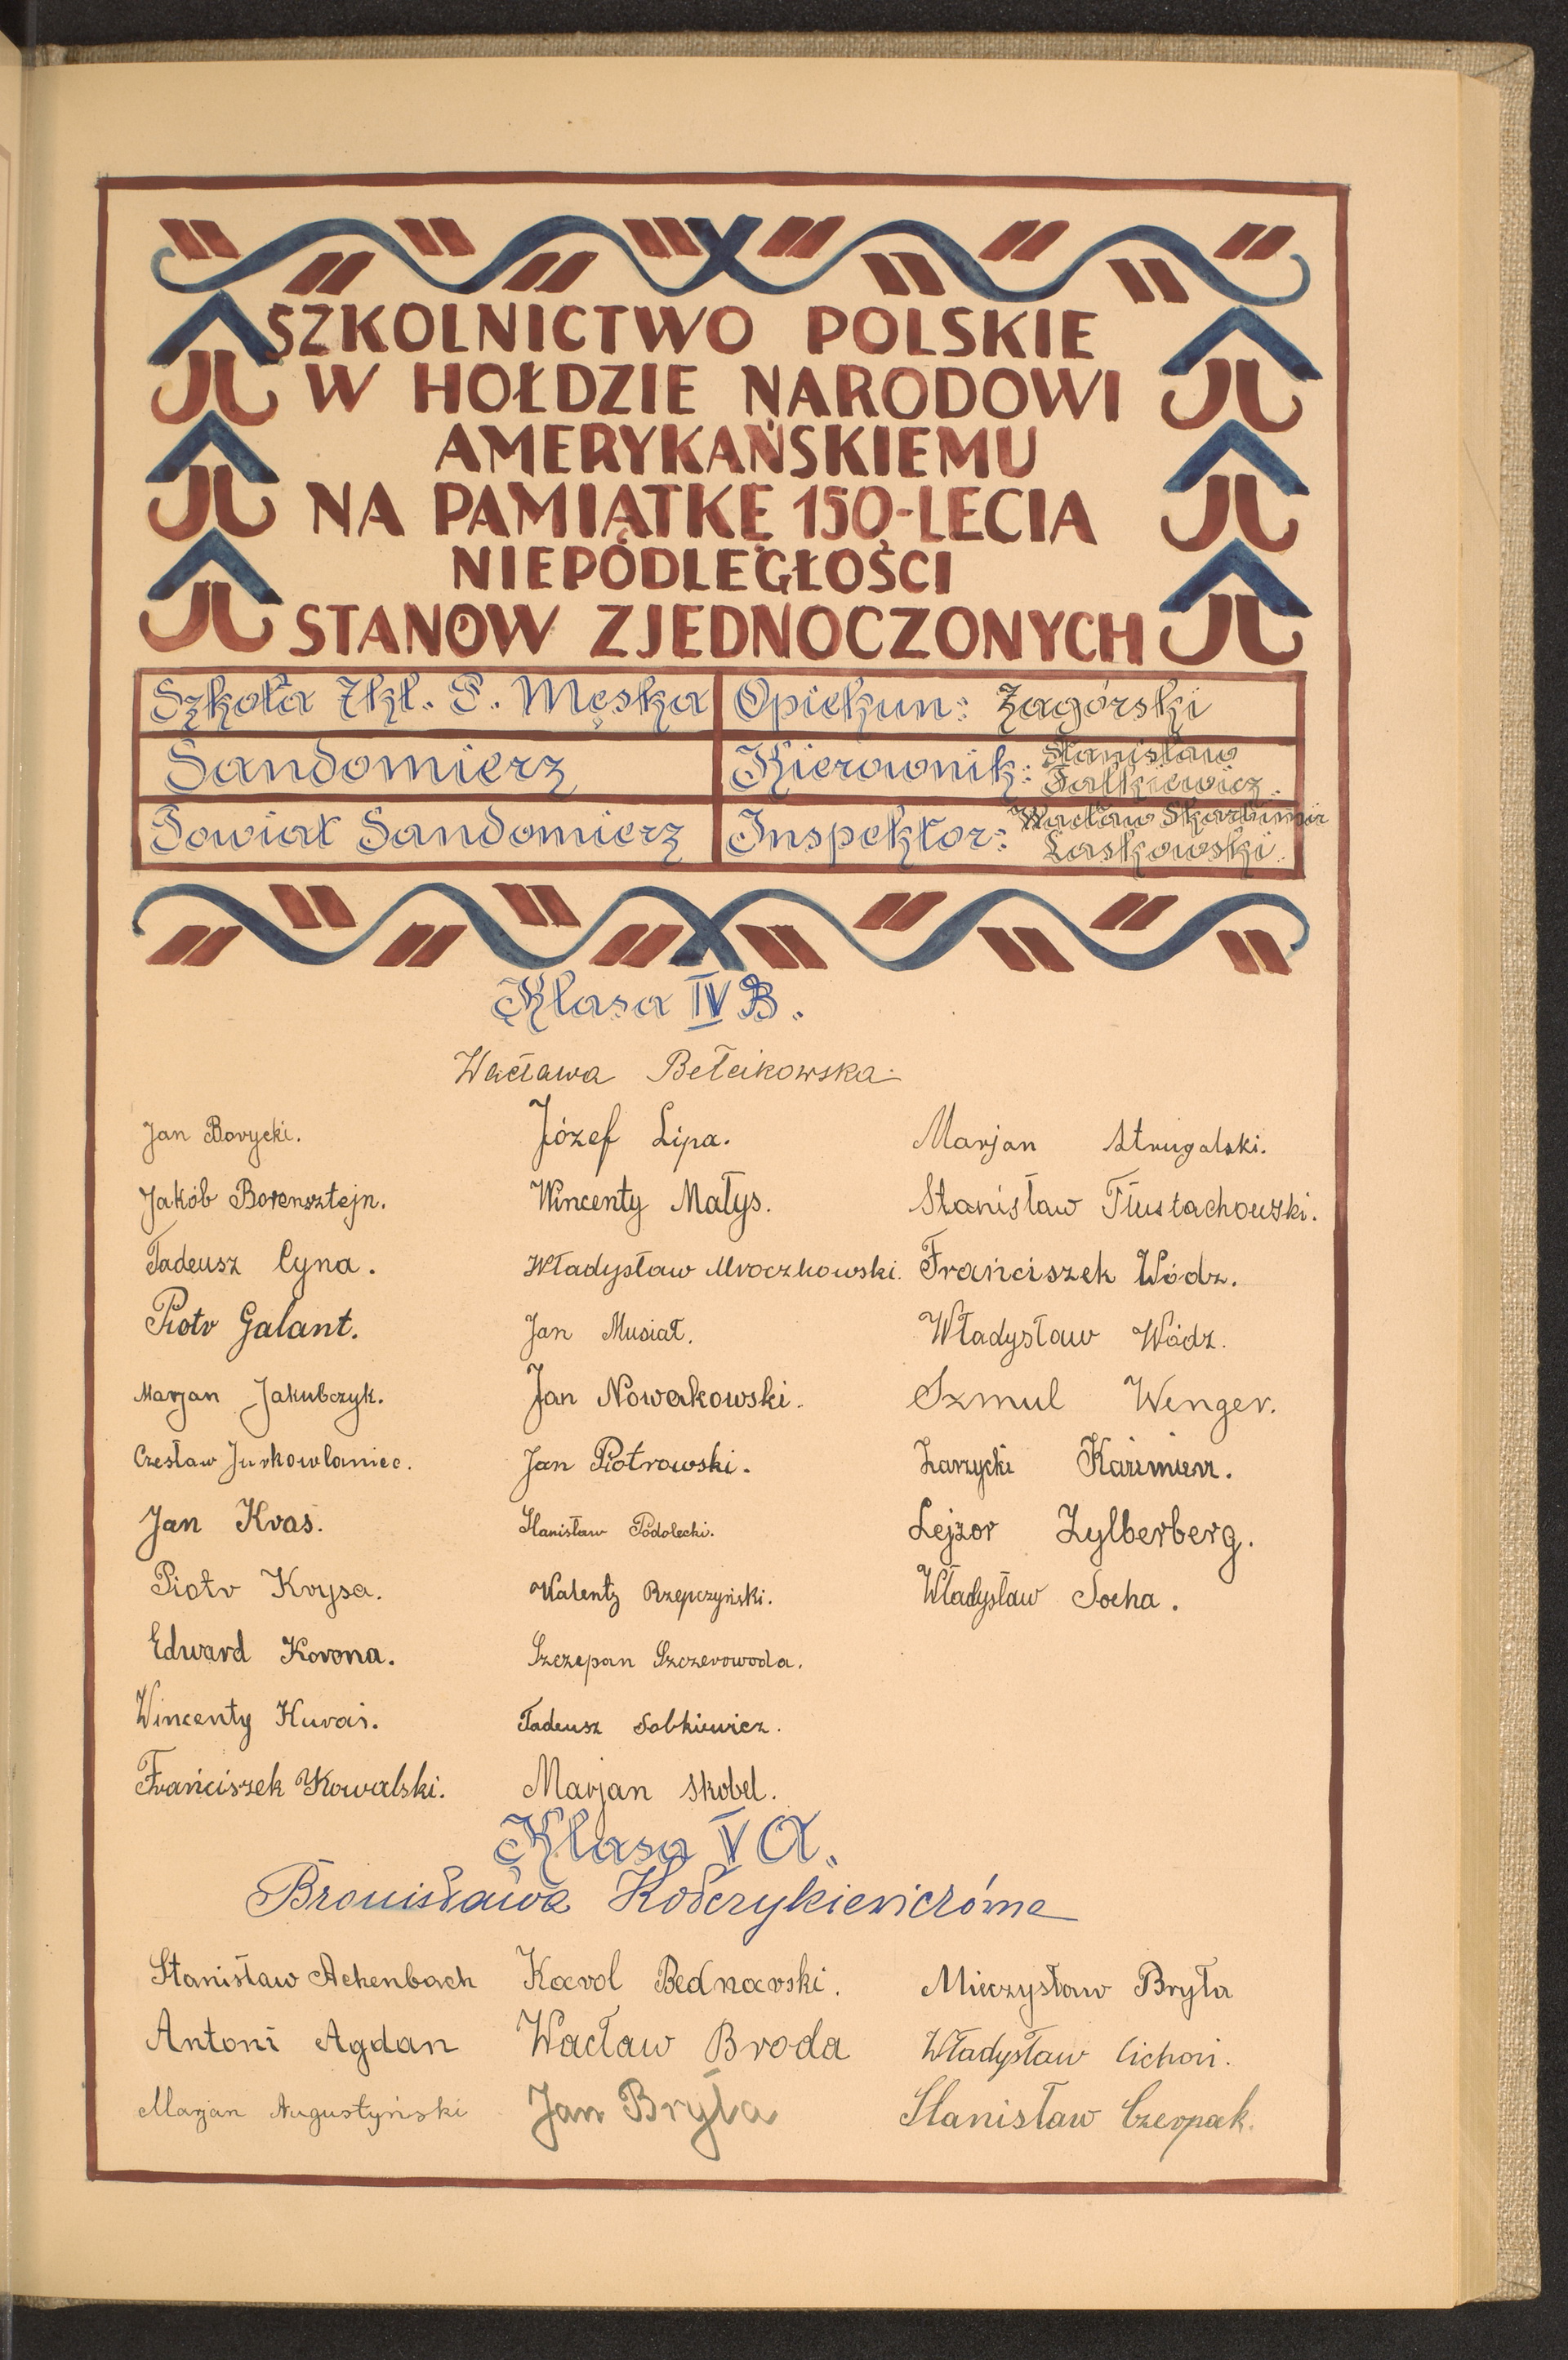 SZKOLNICTWO POLSKIE
W HOŁDZIE NARODOWI
AMERYKAŃSKIEMU
NA PAMIĄTKĘ 150-LECIA
NIEPODLEGŁOŚCI
STANÓW ZJEDNOCZONYCH
Szkoła 7kl. P. Męska
Opiekun: Zagórski
Sandomierz
Kierownik: Stanisław
Fałkiewicz.
Powiat Sandomierz
Inspektor: Wacław Skarbimir
Laskowski.
Klasa IV B.
Wacława Bełcikowska
Jan Borycki.
Jakób Borensztejn.
Tadeusz Cyna.
Piotr Galant.
Marjan Jakubczyk.
Czesław Jurkowlaniec.
Jan Kras.
Piotr Krysa.
Edward Korona.
Wincenty Kuraś.
Frańciszek Kowalski.
Józef Lipa.
Wincenty Małys.
Władysław Mroczkowski.
Jan Musiał.
Jan Nowakowski.
Jan Piotrowski.
Stanisław Podolecki.
Walenty Rzepczyński.
Szczepan Szczerowoda.
Tadeusz Sobkiewicz.
Marjan Skobel.
Marjan Strugalski.
Stanisław Tłustachowski.
Frańciszek Wódz.
Władysław Wódz.
Szmul Wenger.
Zarzycki Kazimierz.
Lejzor Zylberberg.
Władysław Socha.
Klasa V A.
Bronisława
Stanisław Achenbach
Karol Bednarski.
Mieczysław Bryła
Antoni Agdan
Wacław Broda
Władysław Cichoń.
Marjan Augustyński
Jan Bryła
Stanisław Czerpak.